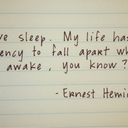 ve sleep. My life has
ency to fall apart wh
awake, you know?
- Ernest Hemin